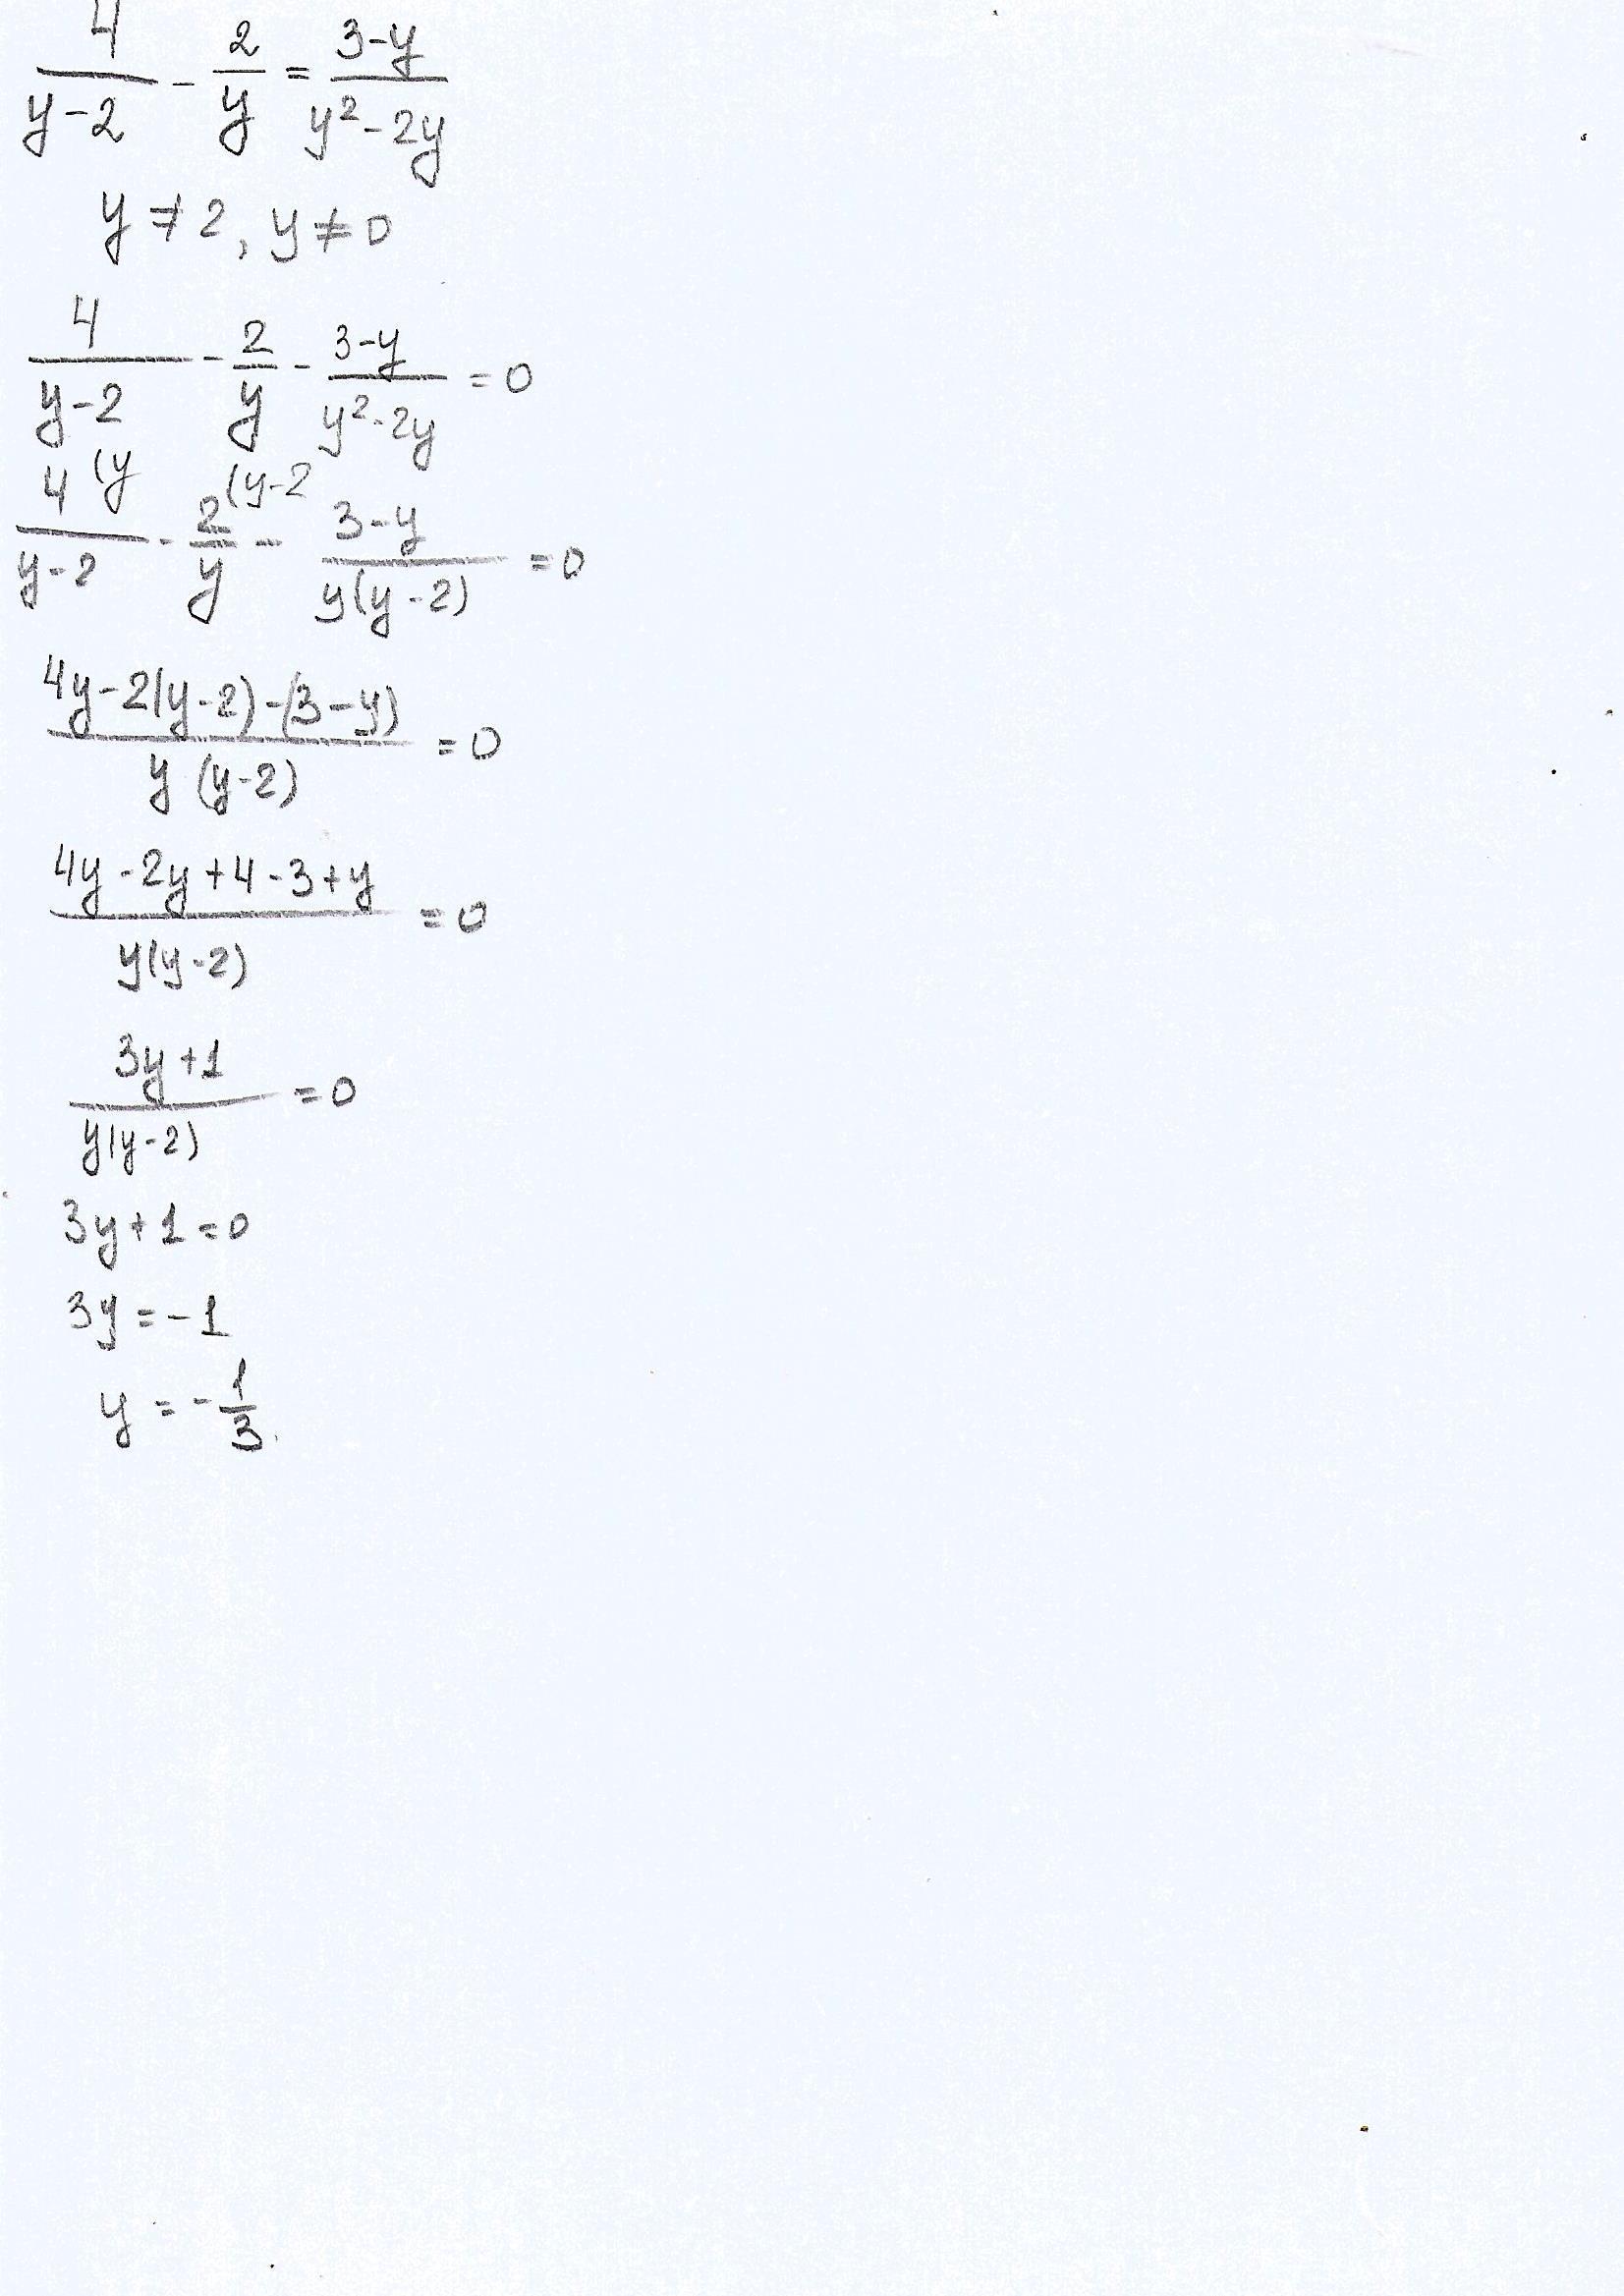 4/(y-2) - 2/y = (3-y)/(y²-2y)
y ≠ 2, y ≠ 0
4/(y-2) - 2/y - (3-y)/(y²-2y) = 0
4 (y/(y-2) - 2 (y-2/y - (3-y)/(y(y-2)) = 0
(4y-2(y-2)-(3-y))/(y(y-2)) = 0
(4y-2y+4-3+y)/(y(y-2)) = 0
(3y+1)/(y(y-2)) = 0
3y+1=0
3y=-1
y = -1/3.